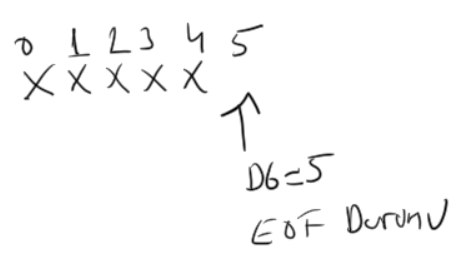 0 1 2 3 4 5
X X X X X
DG=5
EOF Durumu